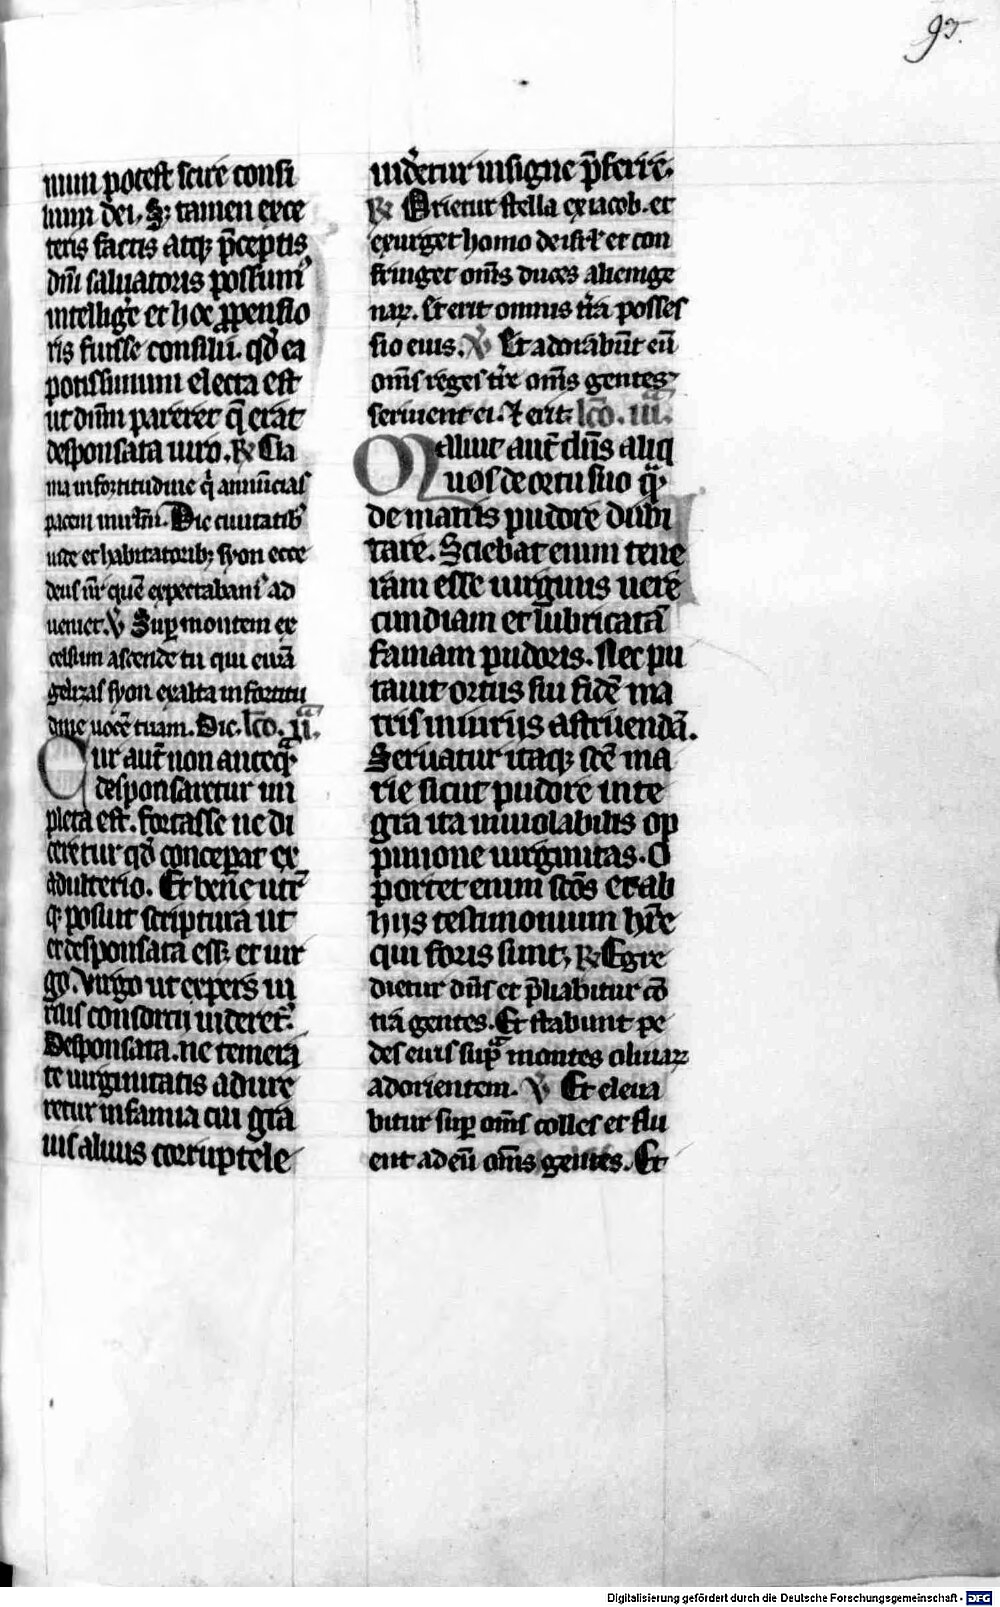 93.
mini potest scire consi
lium dei. Sꝫ tamen exce
teris factis atqꝫ p̄ceptis
dn̄i saluatoris possum᷒
intellig̾e et hoc ꝓpensio
ris fuisse consilii. qd̾ ea
potissimum electa est
ut dn̄m pareret q̄ erat
desponsata uiro. ℟ Cla
ma in fortitudine q̇ annūcias
pacem in irlm̄. Dic ciuitatibꝰ
iude et habitatoribꝫ syon ecce
deus nr̄ quē expectabamꝰ ad
ueniet. ℣ Sup̱ montem ex
celsum ascende tu qui ewā
gelizas syon exalta in fortitu
dine uocē tuam. Dic. lc̄o. ii.ᵃ
Cur aut̄ non anteqᷓ
desponsaretur im
pleta est. fortasse ne di
ceretur qd̾ conceperat ex
adulterio. Et bene utr̄
qꝫ posuit scriptura ut
et desponsata essꝫ et uir
go. Virgo ut expers ui
rilis consorcii uideret᷒.
Desponsata. ne temera
te uirginitatis adure
retur infamia cui gra
uis aluus corruptele
uid̾etur insigne p̄ferre.
℟ Orietur stella ex iacob. et
exurget homo de isrl̄ et con
fringet om̄s duces alienige
naꝝ. Et erit omnis t̄ra posses
sio eius. ℣ Et adorabūt eū
om̄s reges t̄re om̄s gentes
seruient ei. Et erit. lc̄o. iii.ᵃ
Maluit aut̄ dn̄s aliq
uos de ortu suo qᷓ
de matris pudore dubi
tare. Sciebat enim tene
ram esse uirginis uere
cundiam et lubricatā
famam pudoris. Nec pu
tauit ortus sui fidē ma
tris iniuriis astruendā.
Seruatur itaqꝫ sc̄e ma
rie sicut pudore inte
gra ita inuiolabilis op
pinione uirginitas. O
portet enim sc̄os et ab
hiis testimonium hr̄e
qui foris sunt, ℟ Egre
dietur dn̄s et p̄liabitur cō
tra gentes. Et stabunt pe
des eius supᷓ montes oliuaꝝ
ad orientem. ℣ Et eleua
bitur sup̱ om̄s colles et flu
ent ad eū om̄s gentes. Et
Digitalisierung gefördert durch die Deutsche Forschungsgemeinschaft - DFG